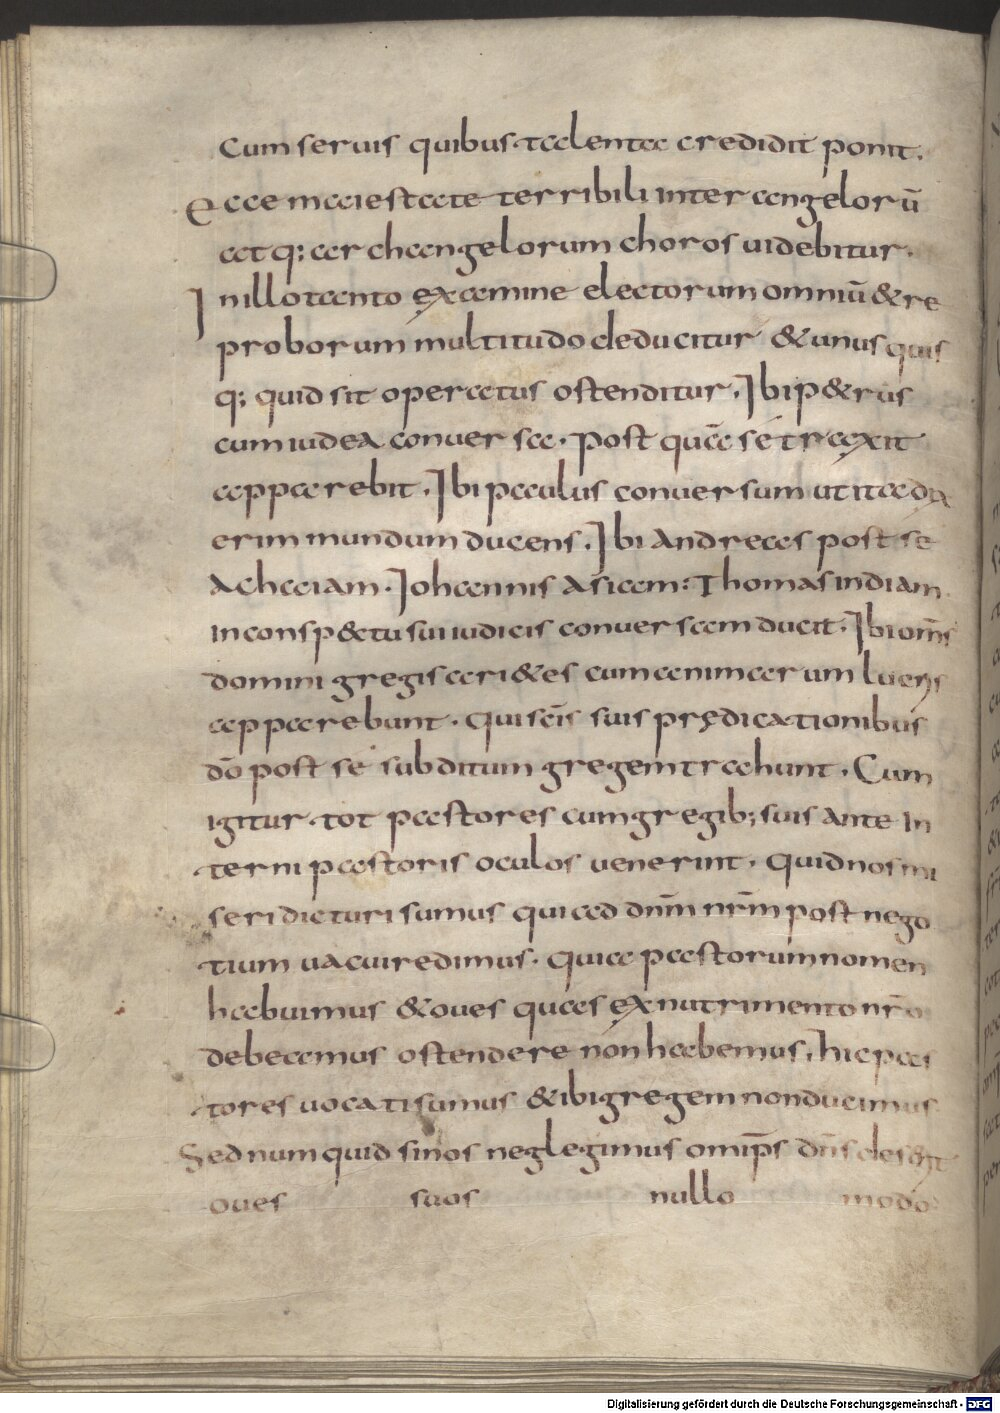 cum seruis quibus talenta credidit ponit.
Ecce maiestate terribili inter angelorū
atq; archangelorum choros uidebitur.
Inillo tanto examine electorum omniū & re
proborum multitudo deducitur & unus quis
q; quid sit operatus ostenditur. Ibi p&rus
cum iudea conuersa. post quā sé traxit
apparebit. Ibi paulus conuersum ut ita dix
erim mundum ducens. Ibi andreas post se
achaiam. Iohannis asiam: Thomas indiam
in consp&tu sui iudicis conuersam ducit. Ibi om̄s
domini gregis ari&es cum animarum lucris
apparebunt. qui sc̄is suis prędicationibus
dō post se subditum gregem trahunt. Cum
igitur tot pastores cum gregib; suis ante In
terni pastoris oculos uenerint. quid nos mi
seri dicturi sumus qui ad dnm̄ nrm̄ post nego
tium uacui redimus. quia pastorum nomen
habuimus & oues quas ex nutrimento nr̄o
debeamus ostendere non habemus. hic pas
tores uocati sumus & ibi gregem non ducimus
Sed numquid si nos neglegimus omip̄s dn̄s deserit
oues suos nullo modo
Digitalisierung gefördert durch die Deutsche Forschungsgemeinschaft - DFG